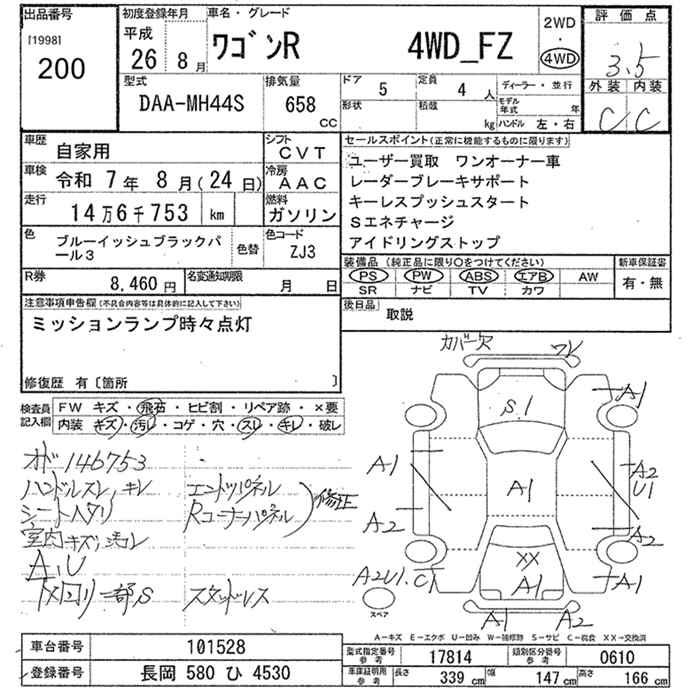 出品番号
[1998]
200
初度登録年月
平成
26 8 月
車名・グレード
ワゴンR 4WD_FZ
2WD
・
4WD
評価点
3.5
外装 内装
C C
型式
DAA-MH44S
排気量
658
cc
ドア 5
定員 4 人
形状
積載 kg
ディーラー・並行
モデル年式 年
ハンドル 左・右
車歴
自家用
シフト
CVT
車検
令和 7年 8月(24日)
冷房
AAC
走行
14万6千753 km
燃料
ガソリン
色
ブルーイッシュブラックパール3
色替
色コード
ZJ3
R券
8,460 円
名変通知期限
月 日
セールスポイント(正常に機能するものに限ります)
ユーザー買取 ワンオーナー車
レーダーブレーキサポート
キーレスプッシュスタート
Sエネチャージ
アイドリングストップ
装備品(純正品に限り○をつけてください)
新車保証書
PS PW ABS エアB AW
SR ナビ TV カワ
有・無
後日品
取説
注意事項申告欄(不具合内容等は具体的に記入して下さい)
ミッションランプ時々点灯
修復歴 有〔箇所 〕
検査員記入欄
FW キズ・飛石・ヒビ割・リペア跡・×要
内装 キズ・汚レ・コゲ・穴・スレ・キレ・破レ
オド146753
ハンドルスレ、キレ
シートヘタリ
室内キズ、汚レ
A、U
下回リ一部S
エンドパネル
Rコーナーパネル
修正
スタッドレス
カバー欠
ワレ
S.1
A1
A1
A2
U1
A1
A2
A2
A2U1.C1
XX
A1
A1
A1
A2
スペア
A－キズ E－エクボ U－凹み W－補修跡 S－サビ C－腐食 XX－交換済
車台番号
101528
登録番号
長岡 580 ひ 4530
型式指定番号
参考
17814
類別区分番号
参考
0610
車庫証明用
参考
長さ 339 cm
幅 147 cm
高さ 166 cm